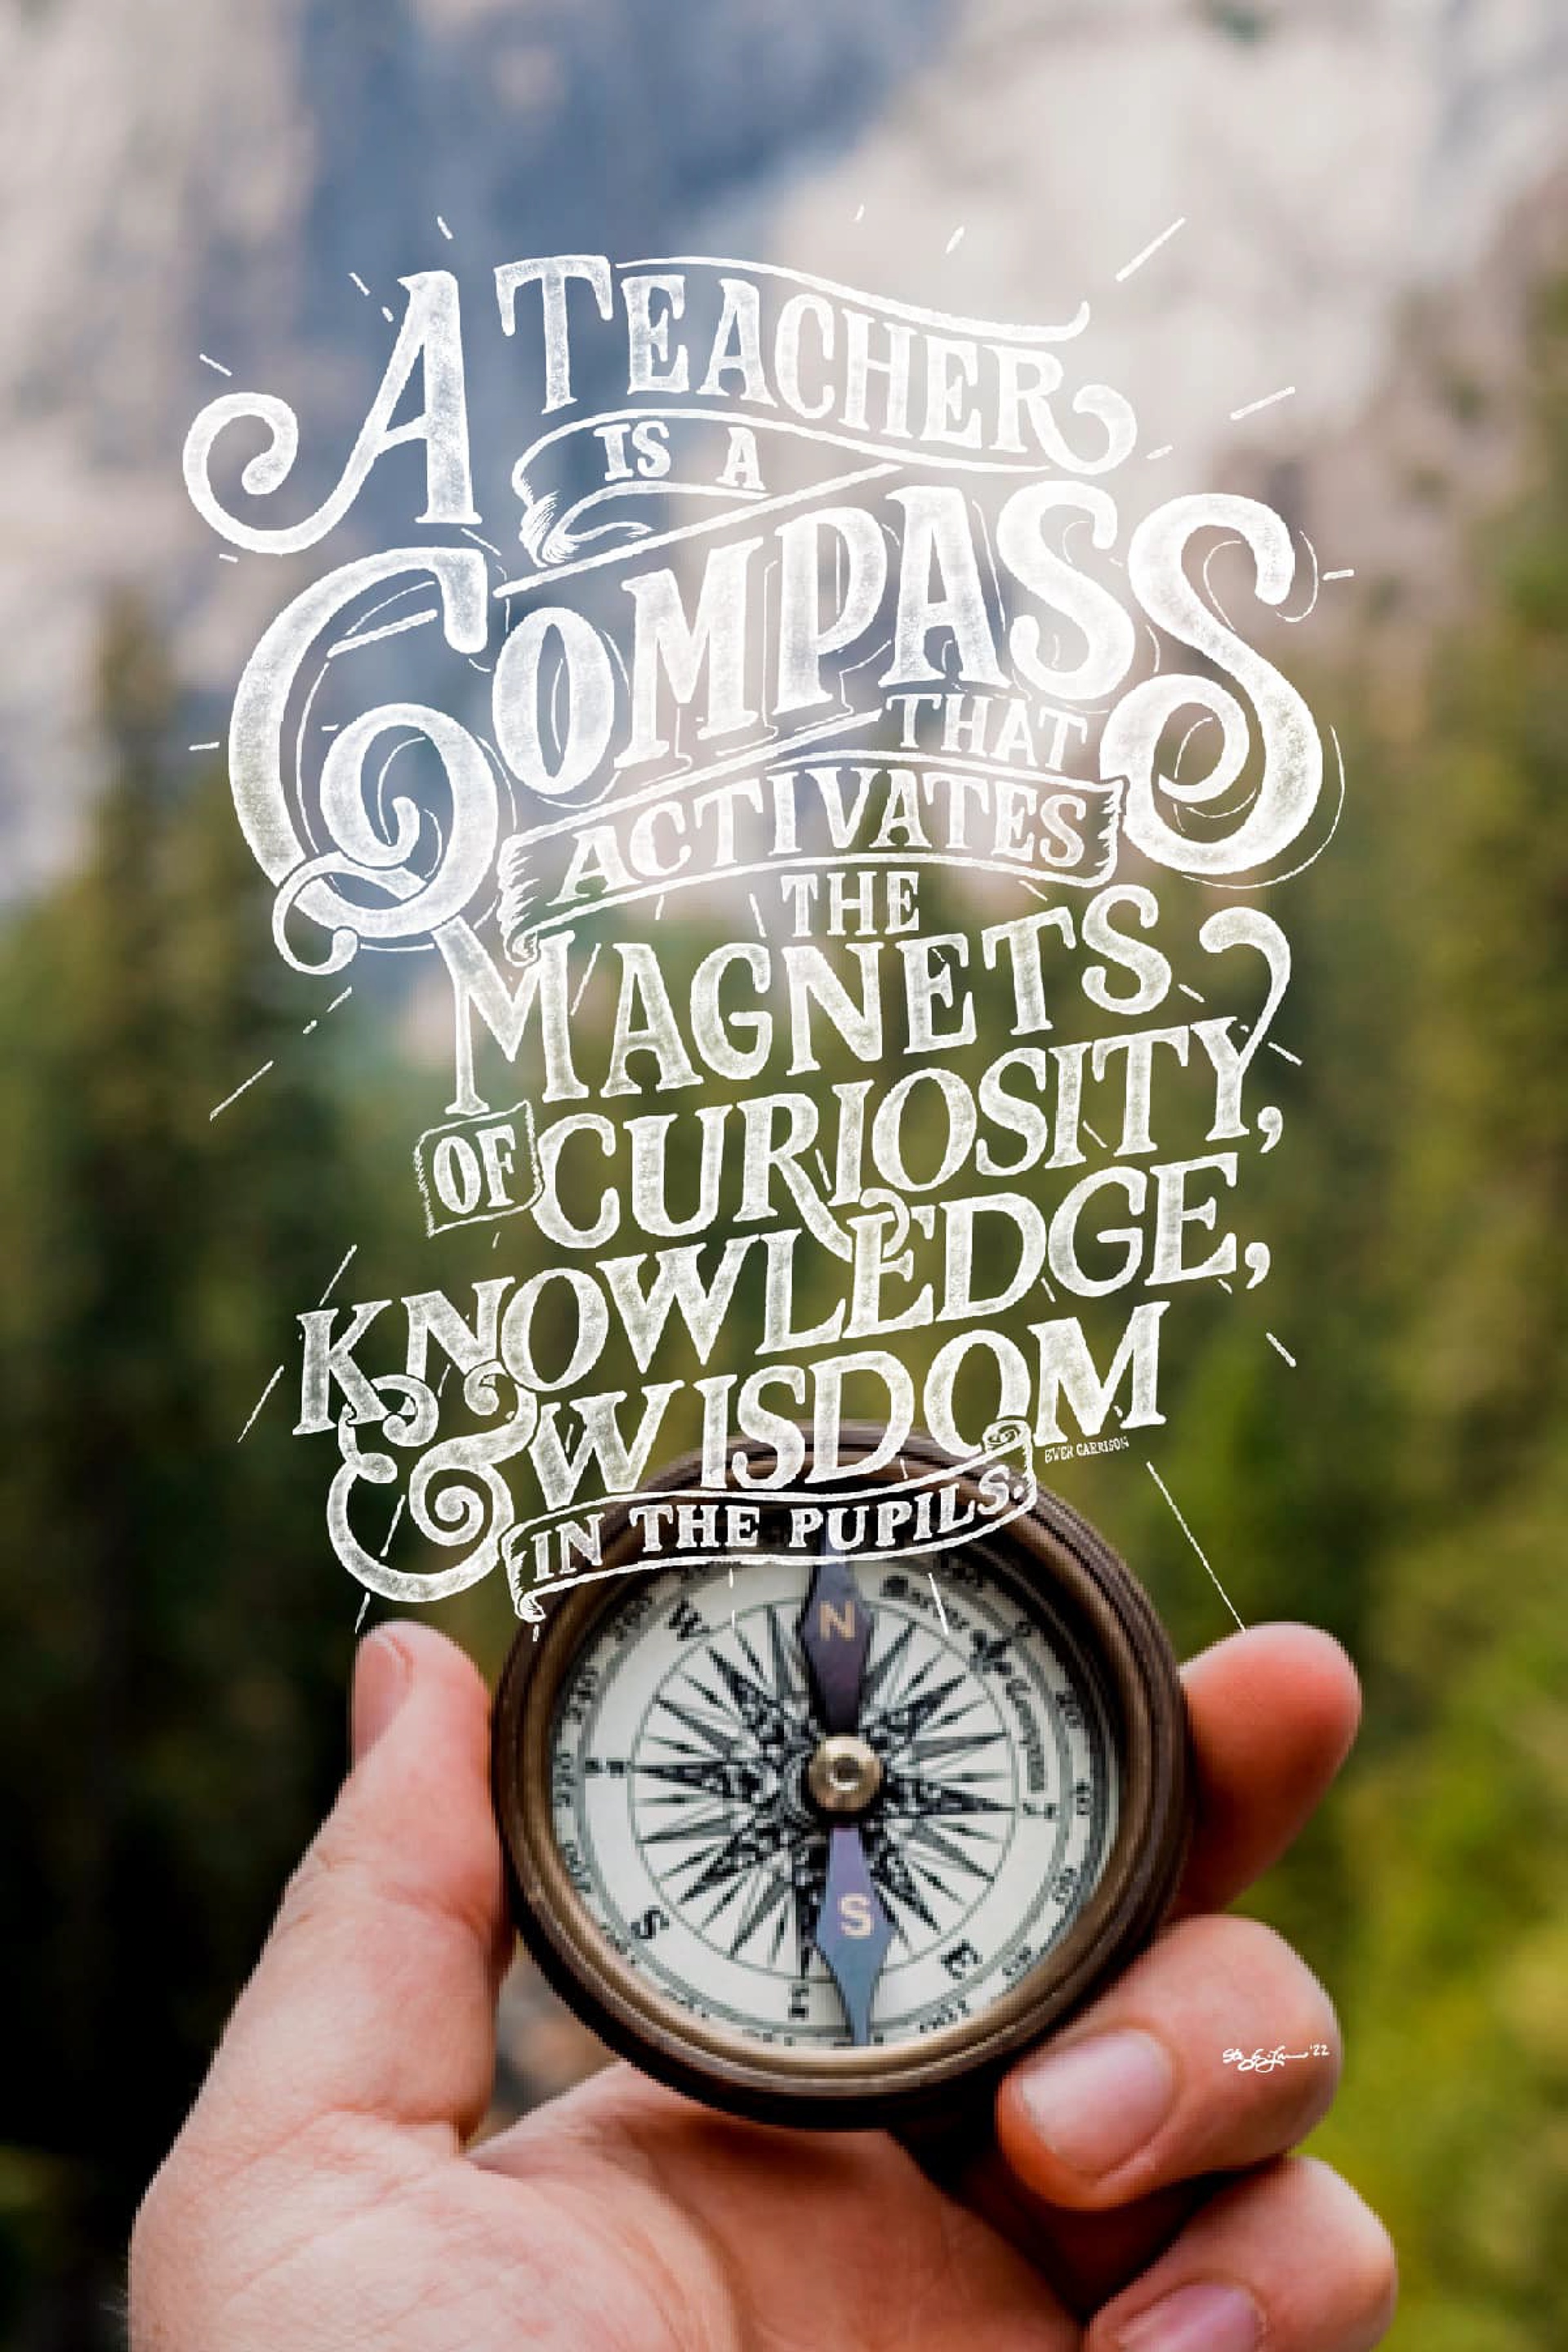 A TEACHER
IS A
COMPASS
THAT
ACTIVATES
THE
MAGNETS
OF CURIOSITY,
KNOWLEDGE,
& WISDOM
EVER GARRISON
IN THE PUPILS.
N
W
S
S
E
'22